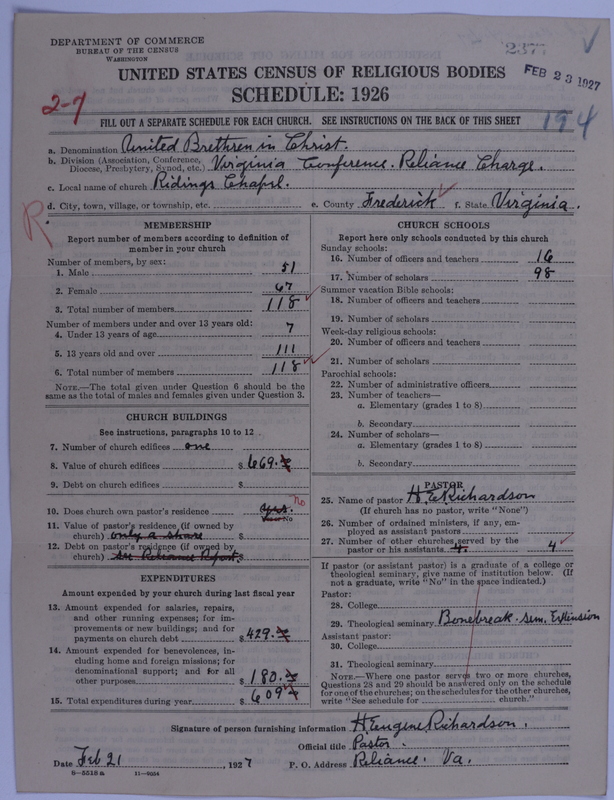 DEPARTMENT OF COMMERCE
BUREAU OF THE CENSUS
WASHINGTON
2377
FEB 23 1927
UNITED STATES CENSUS OF RELIGIOUS BODIES
SCHEDULE: 1926
2-7
194
FILL OUT A SEPARATE SCHEDULE FOR EACH CHURCH. SEE INSTRUCTIONS ON THE BACK OF THIS SHEET
a. Denomination United Brethren in Christ.
b. Division (Association, Conference, Diocese, Presbytery, Synod, etc.) Virginia Conference. Reliance Charge.
c. Local name of church Ridings Chapel.
d. City, town, village, or township, etc. e. County Frederick f. State Virginia.
R
MEMBERSHIP
Report number of members according to definition of
member in your church
Number of members, by sex:
1. Male 51
2. Female 67
3. Total number of members 118
Number of members under and over 13 years old:
4. Under 13 years of age 7
5. 13 years old and over 111
6. Total number of members 118
NOTE.—The total given under Question 6 should be the
same as the total of males and females given under Question 3.
CHURCH BUILDINGS
See instructions, paragraphs 10 to 12
7. Number of church edifices one
8. Value of church edifices $ 669.
9. Debt on church edifices $
10. Does church own pastor's residence yes. No
Yes or No
11. Value of pastor's residence (if owned by
church) only a share $
12. Debt on pastor's residence (if owned by
church) see Reliance Report. $
EXPENDITURES
Amount expended by your church during last fiscal year
13. Amount expended for salaries, repairs,
and other running expenses; for im-
provements or new buildings; and for
payments on church debt $ 429.
14. Amount expended for benevolences, in-
cluding home and foreign missions; for
denominational support; and for all
other purposes $ 180.
15. Total expenditures during year $ 609
CHURCH SCHOOLS
Report here only schools conducted by this church
Sunday schools:
16. Number of officers and teachers 16
17. Number of scholars 98
Summer vacation Bible schools:
18. Number of officers and teachers
19. Number of scholars
Week-day religious schools:
20. Number of officers and teachers
21. Number of scholars
Parochial schools:
22. Number of administrative officers
23. Number of teachers—
a. Elementary (grades 1 to 8)
b. Secondary
24. Number of scholars—
a. Elementary (grades 1 to 8)
b. Secondary
PASTOR
25. Name of pastor H. E. Richardson
(If church has no pastor, write "None")
26. Number of ordained ministers, if any, em-
ployed as assistant pastors
27. Number of other churches served by the
pastor or his assistants 4. 4
If pastor (or assistant pastor) is a graduate of a college or
theological seminary, give name of institution below. (If
not a graduate, write "No" in the space indicated.)
Pastor:
28. College
29. Theological seminary Bonebreak. Sem. Extension
Assistant pastor:
30. College
31. Theological seminary
NOTE.—Where one pastor serves two or more churches,
Questions 28 and 29 should be answered only on the schedule
for one of the churches; on the schedules for the other churches,
write "See schedule for church."
Signature of person furnishing information H. Eugene Richardson.
Official title Pastor.
Date Feb 21, 1927 P. O. Address Reliance. Va.
8—5518 a 11—9054